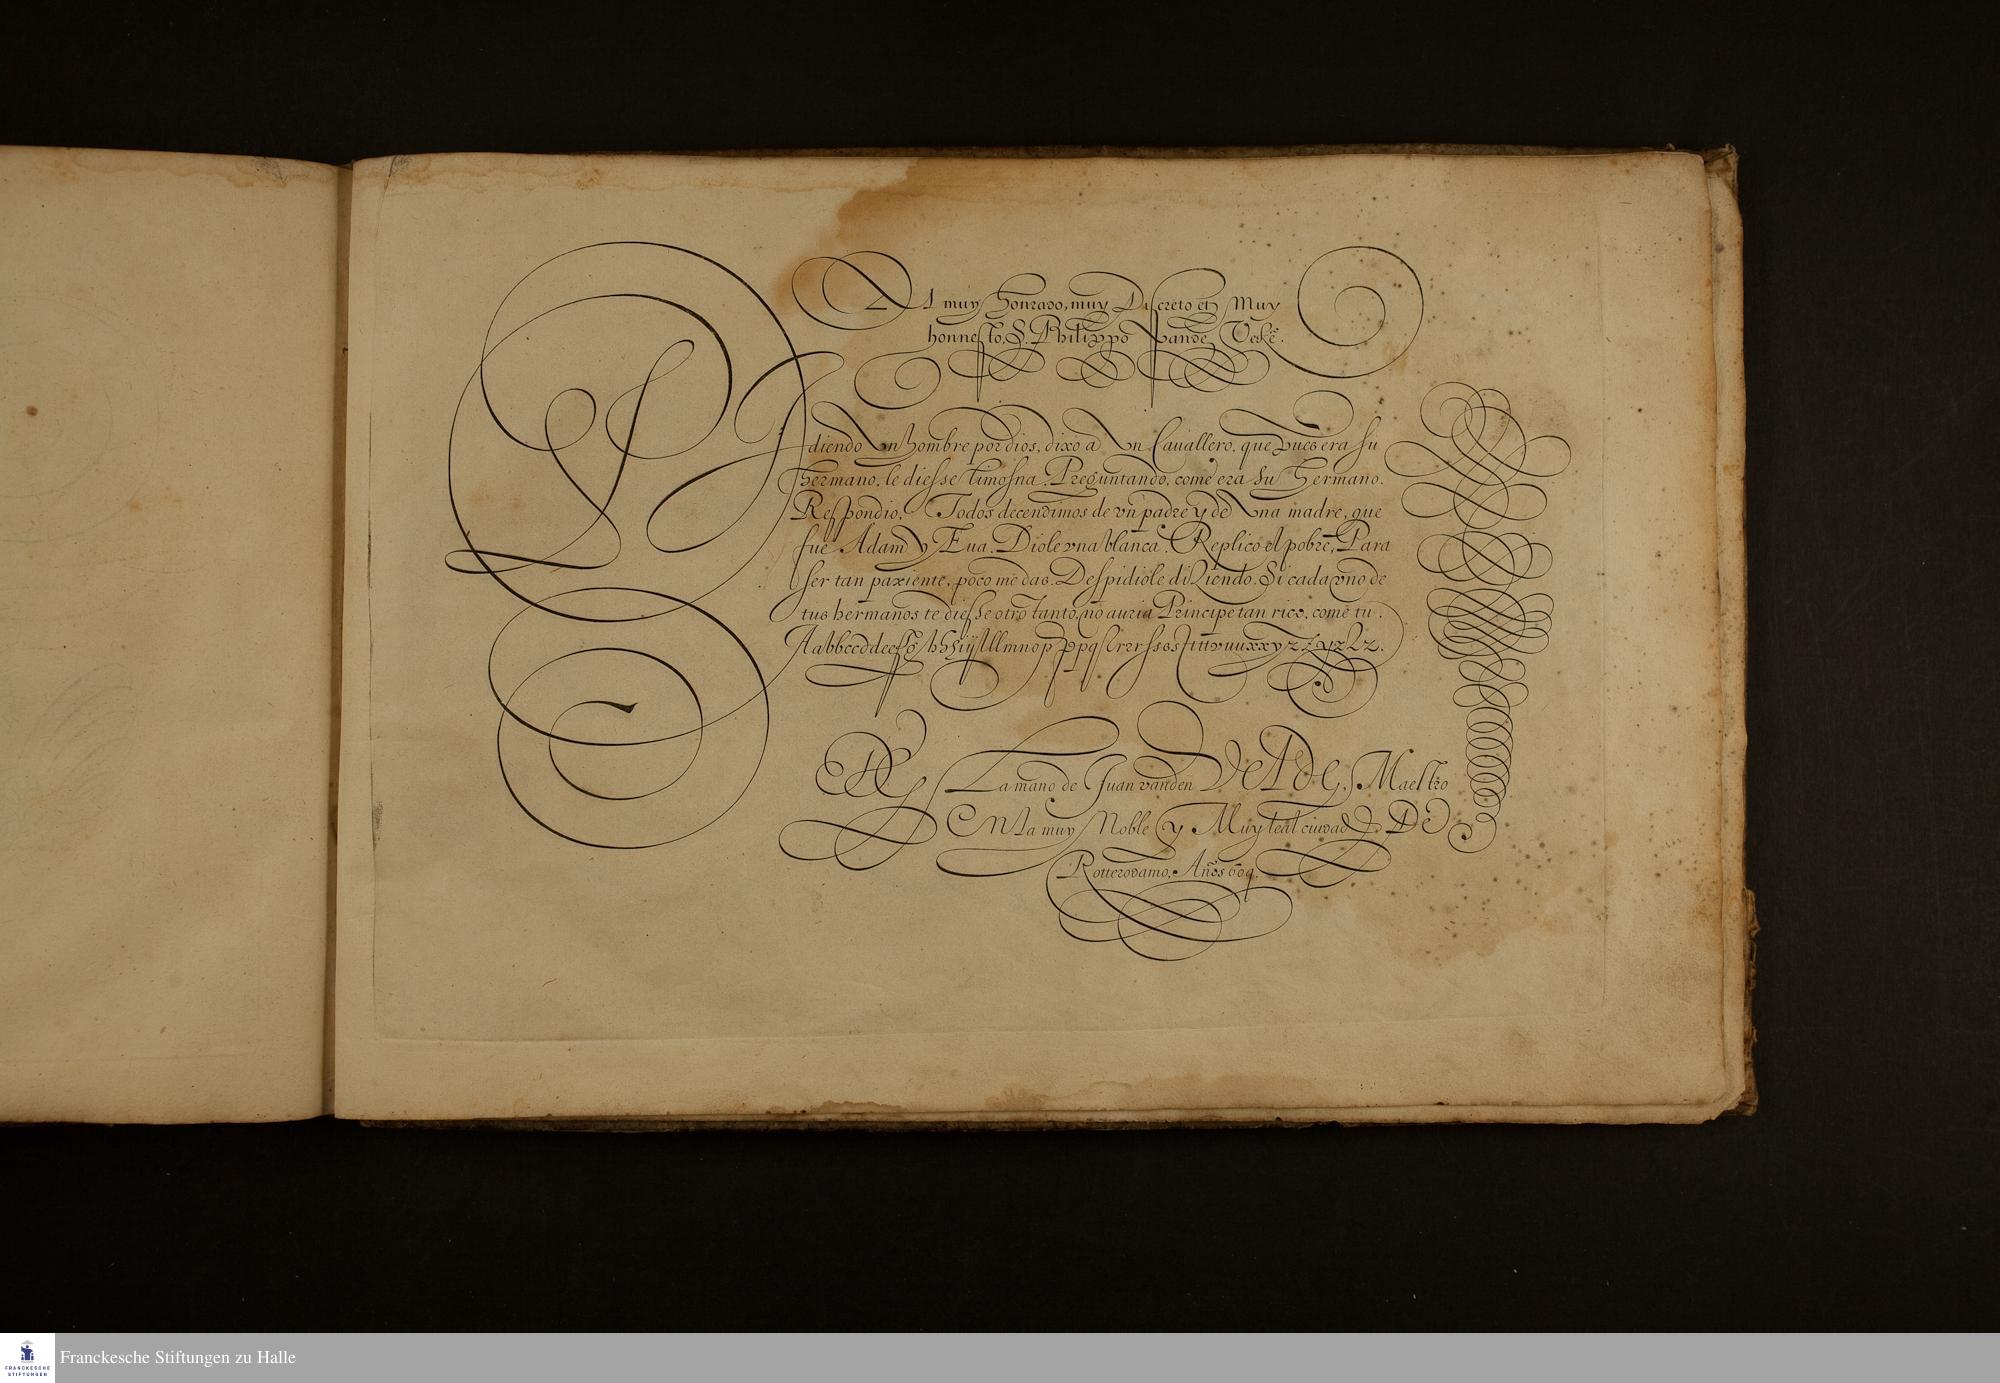 Al muy honrado, muy Discreto et Muy
honnesto, S. Philippo Vande Veke.
Pidiendo Un hombre por dios, dixo a Un Cauallero, que pues era su
hermano, le diesse limosna. Preguntando, come era su Hermano.
Respondio, Todos decendimos de vn padre y de Una madre, que
fue Adam y Eua. Diole vna blanca. Replico el pobre, Para
ser tan paxiente, poco me das. Despidiole diziendo. Si cada vno de
tus hermanos te diesse otro tanto, no auria Principe tan rico, come tu.
De La mano de Juan vanden Velde, Maestro
en la muy Noble y Muy leal ciudad De
Rotterodamo, Años 609.
Franckesche Stiftungen zu Halle
FRANCKESCHE
STIFTUNGEN